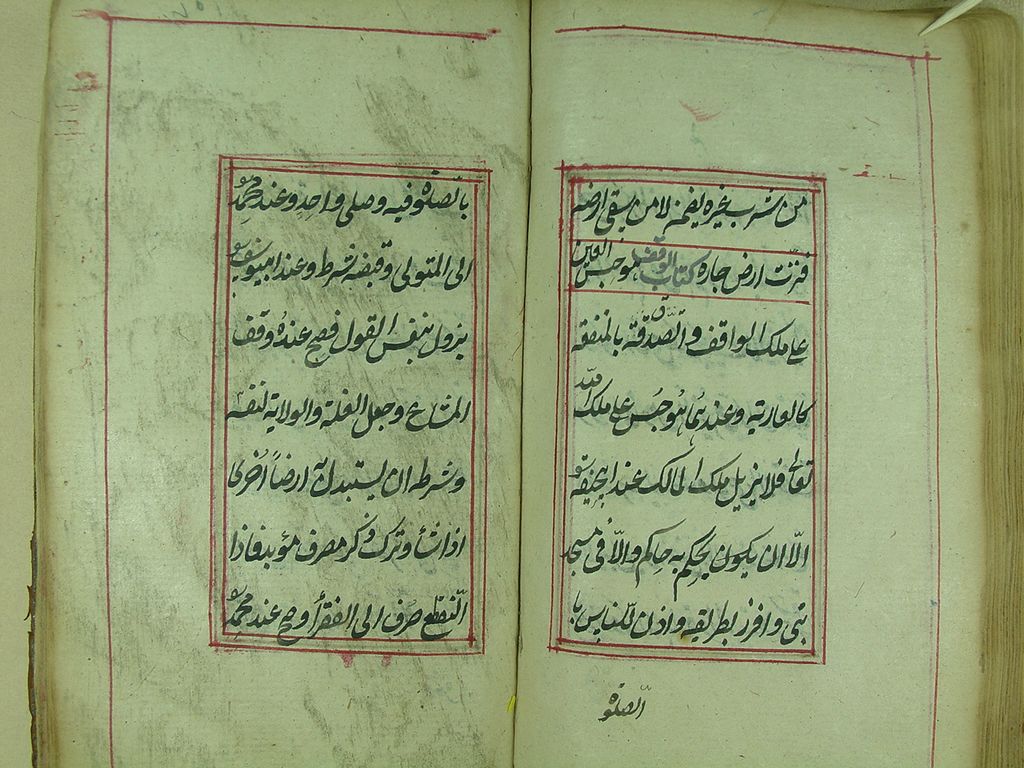 من شرب غيره يضمنه لا من سقى ارضه
فنزت ارض جاره كتاب الوقف هو حبس العين
على ملك الواقف والصّدقة بالمنفعة
كالعارية وعندهما هو حبس على ملك الله
تعالى فلا يزيل ملك المالك عند ابيحنيفة
الّا ان يكون يحكم به حاكم والّا فى مسجد
بنى وافرز بطريقه واذن للناس با
الصّلوة
بالصّلوة فيه وصلى واحدٍ وعند محمد
الى المتولى وقبضه شرط وعند ابييوسف
يزول بنفس القول فصح عنده وقف
المشاع وجعل الغلة والولاية لنفسه
وشرطه ان يستبدل به ارضاً اُخرى
اذا شأ وترك ذكر مصرف مؤبد فاذا
انقطع صرف الى الفقرأ وصح عند محمد